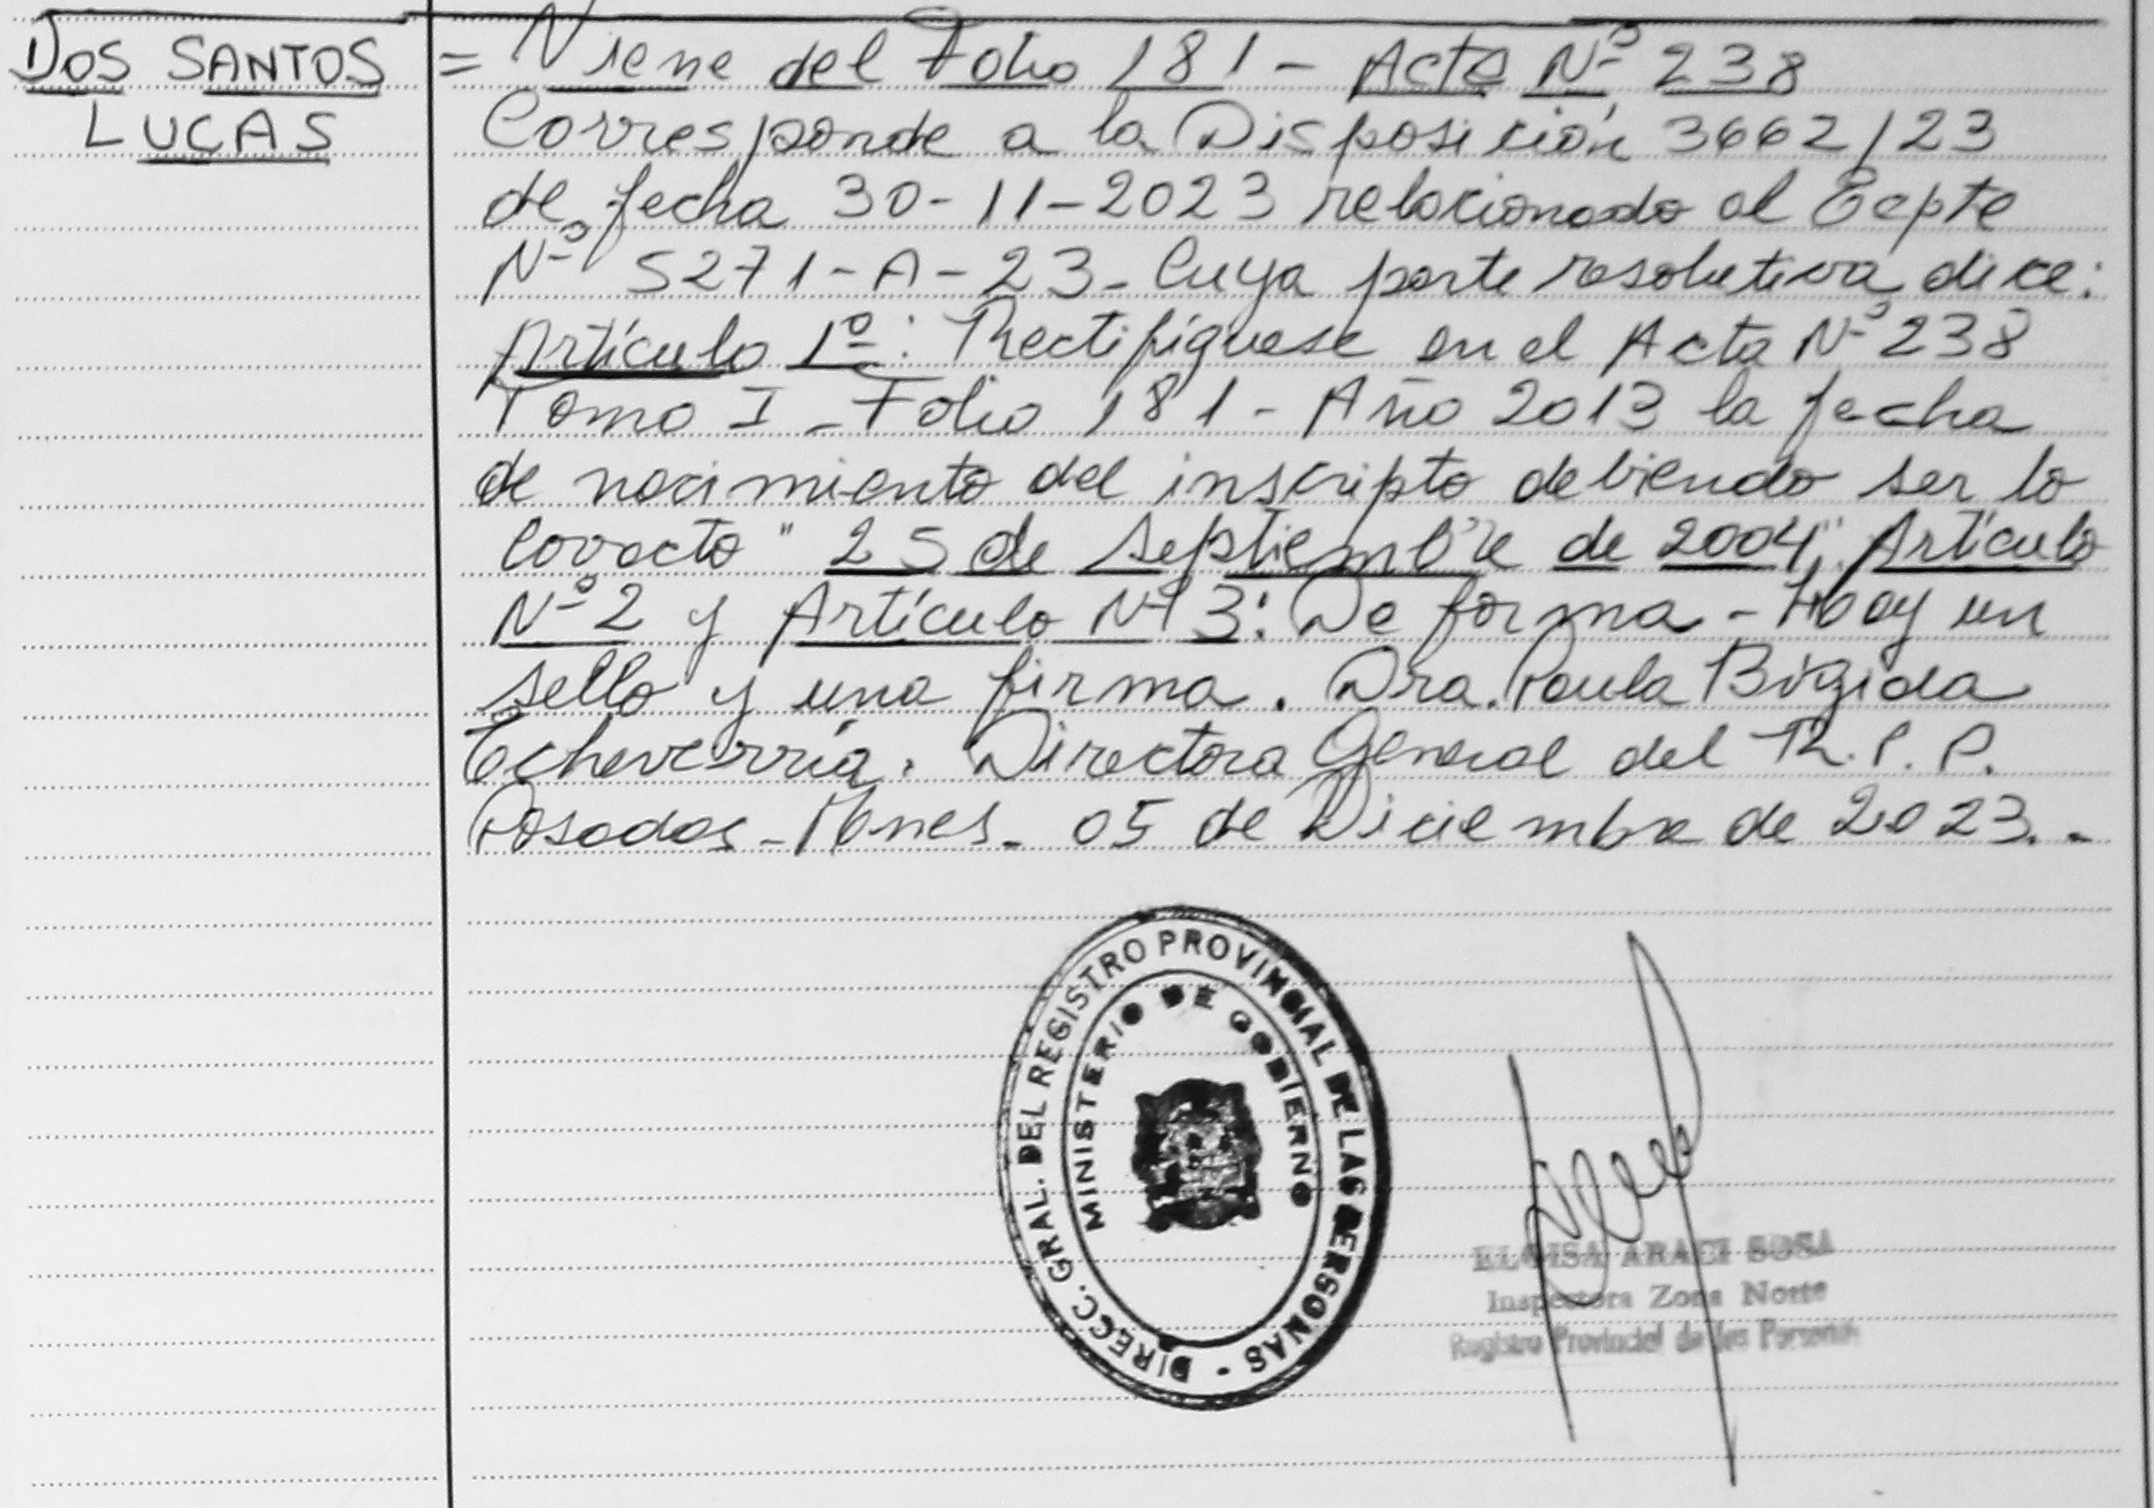 DOS SANTOS
LUCAS
= Viene del Folio 181 - Acta Nº 238
Corresponde a la Disposición 3662/23
de fecha 30-11-2023 relacionado al Expte
Nº 5271-A-23- Cuya parte resolutiva dice:
Artículo 1º: Rectifíquese en el Acta Nº 238
Tomo I - Folio 181 - Año 2013 la fecha
de nacimiento del inscripto debiendo ser lo
correcto "25 de Septiembre de 2004". Artículo
Nº 2 y Artículo Nº 3: De forma - Hay un
sello y una firma. Dra. Paula Brigida
Echeverría. Directora General del R.P.P.
Posadas - Mnes - 05 de Diciembre de 2023.-
DIRECC. GRAL. DEL REGISTRO PROVINCIAL DE LAS PERSONAS -
MINISTERIO DE GOBIERNO
ELOISA ARACI SOSA
Inspectora Zona Norte
Registro Provincial de las Personas